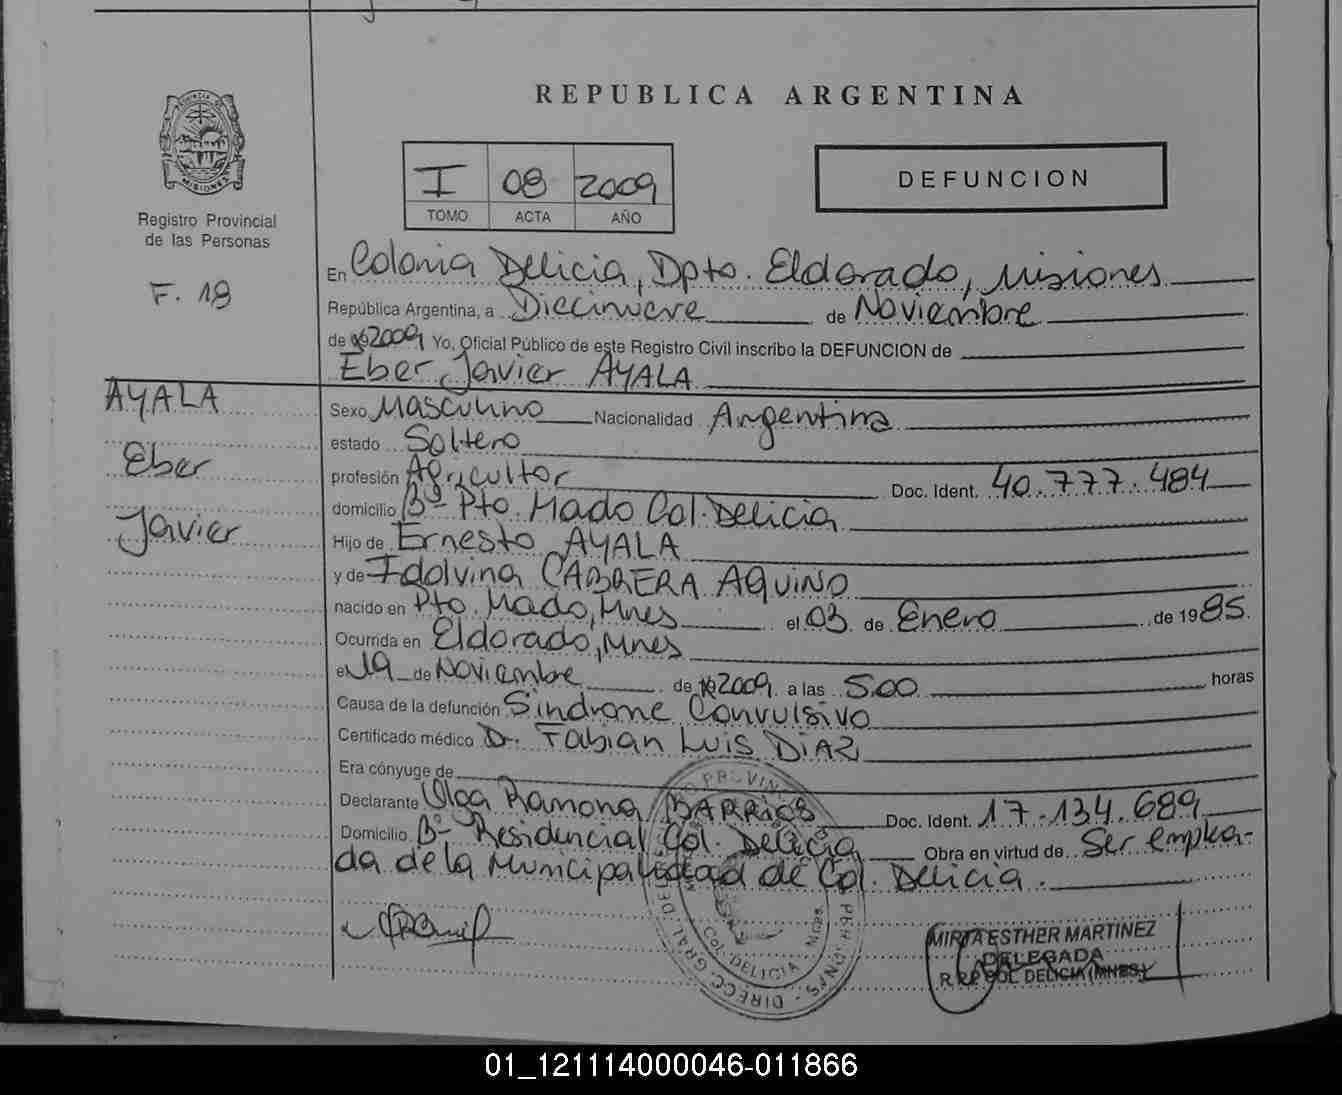 REPUBLICA ARGENTINA
PROVINCIA DE MISIONES
Registro Provincial
de las Personas
F. 18
I 08 2009
TOMO ACTA AÑO
DEFUNCION
En Colonia Delicia, Dpto. Eldorado, Misiones
República Argentina, a Diecinueve de Noviembre
de 2009 Yo, Oficial Público de este Registro Civil inscribo la DEFUNCION de
Eber Javier AYALA
AYALA
Eber
Javier
Sexo Masculino Nacionalidad Argentina
estado Soltero
profesión Agricultor Doc. Ident. 40.777.484
domicilio Bº Pto. Mado Col. Delicia
Hijo de Ernesto AYALA
y de Idolvina CABRERA AQUINO
nacido en Pto. Mado, Mnes el 03 de Enero de 1985.
Ocurrida en Eldorado, Mnes
el 19 de Noviembre de 2009 a las 5.00 horas
Causa de la defunción Sindrome Convulsivo
Certificado médico Dr. Fabian Luis DIAZ
Era cónyuge de
Declarante Olga Ramona BARRIOS Doc. Ident. 17.134.689
Domicilio Bº Residencial Col. Delicia Obra en virtud de Ser emplea-
da de la Municipalidad de Col. Delicia.
COL. DELICIA Mnes.
MIRTA ESTHER MARTINEZ
DELEGADA
R.P.P COL DELICIA (MNES)
01_121114000046-011866